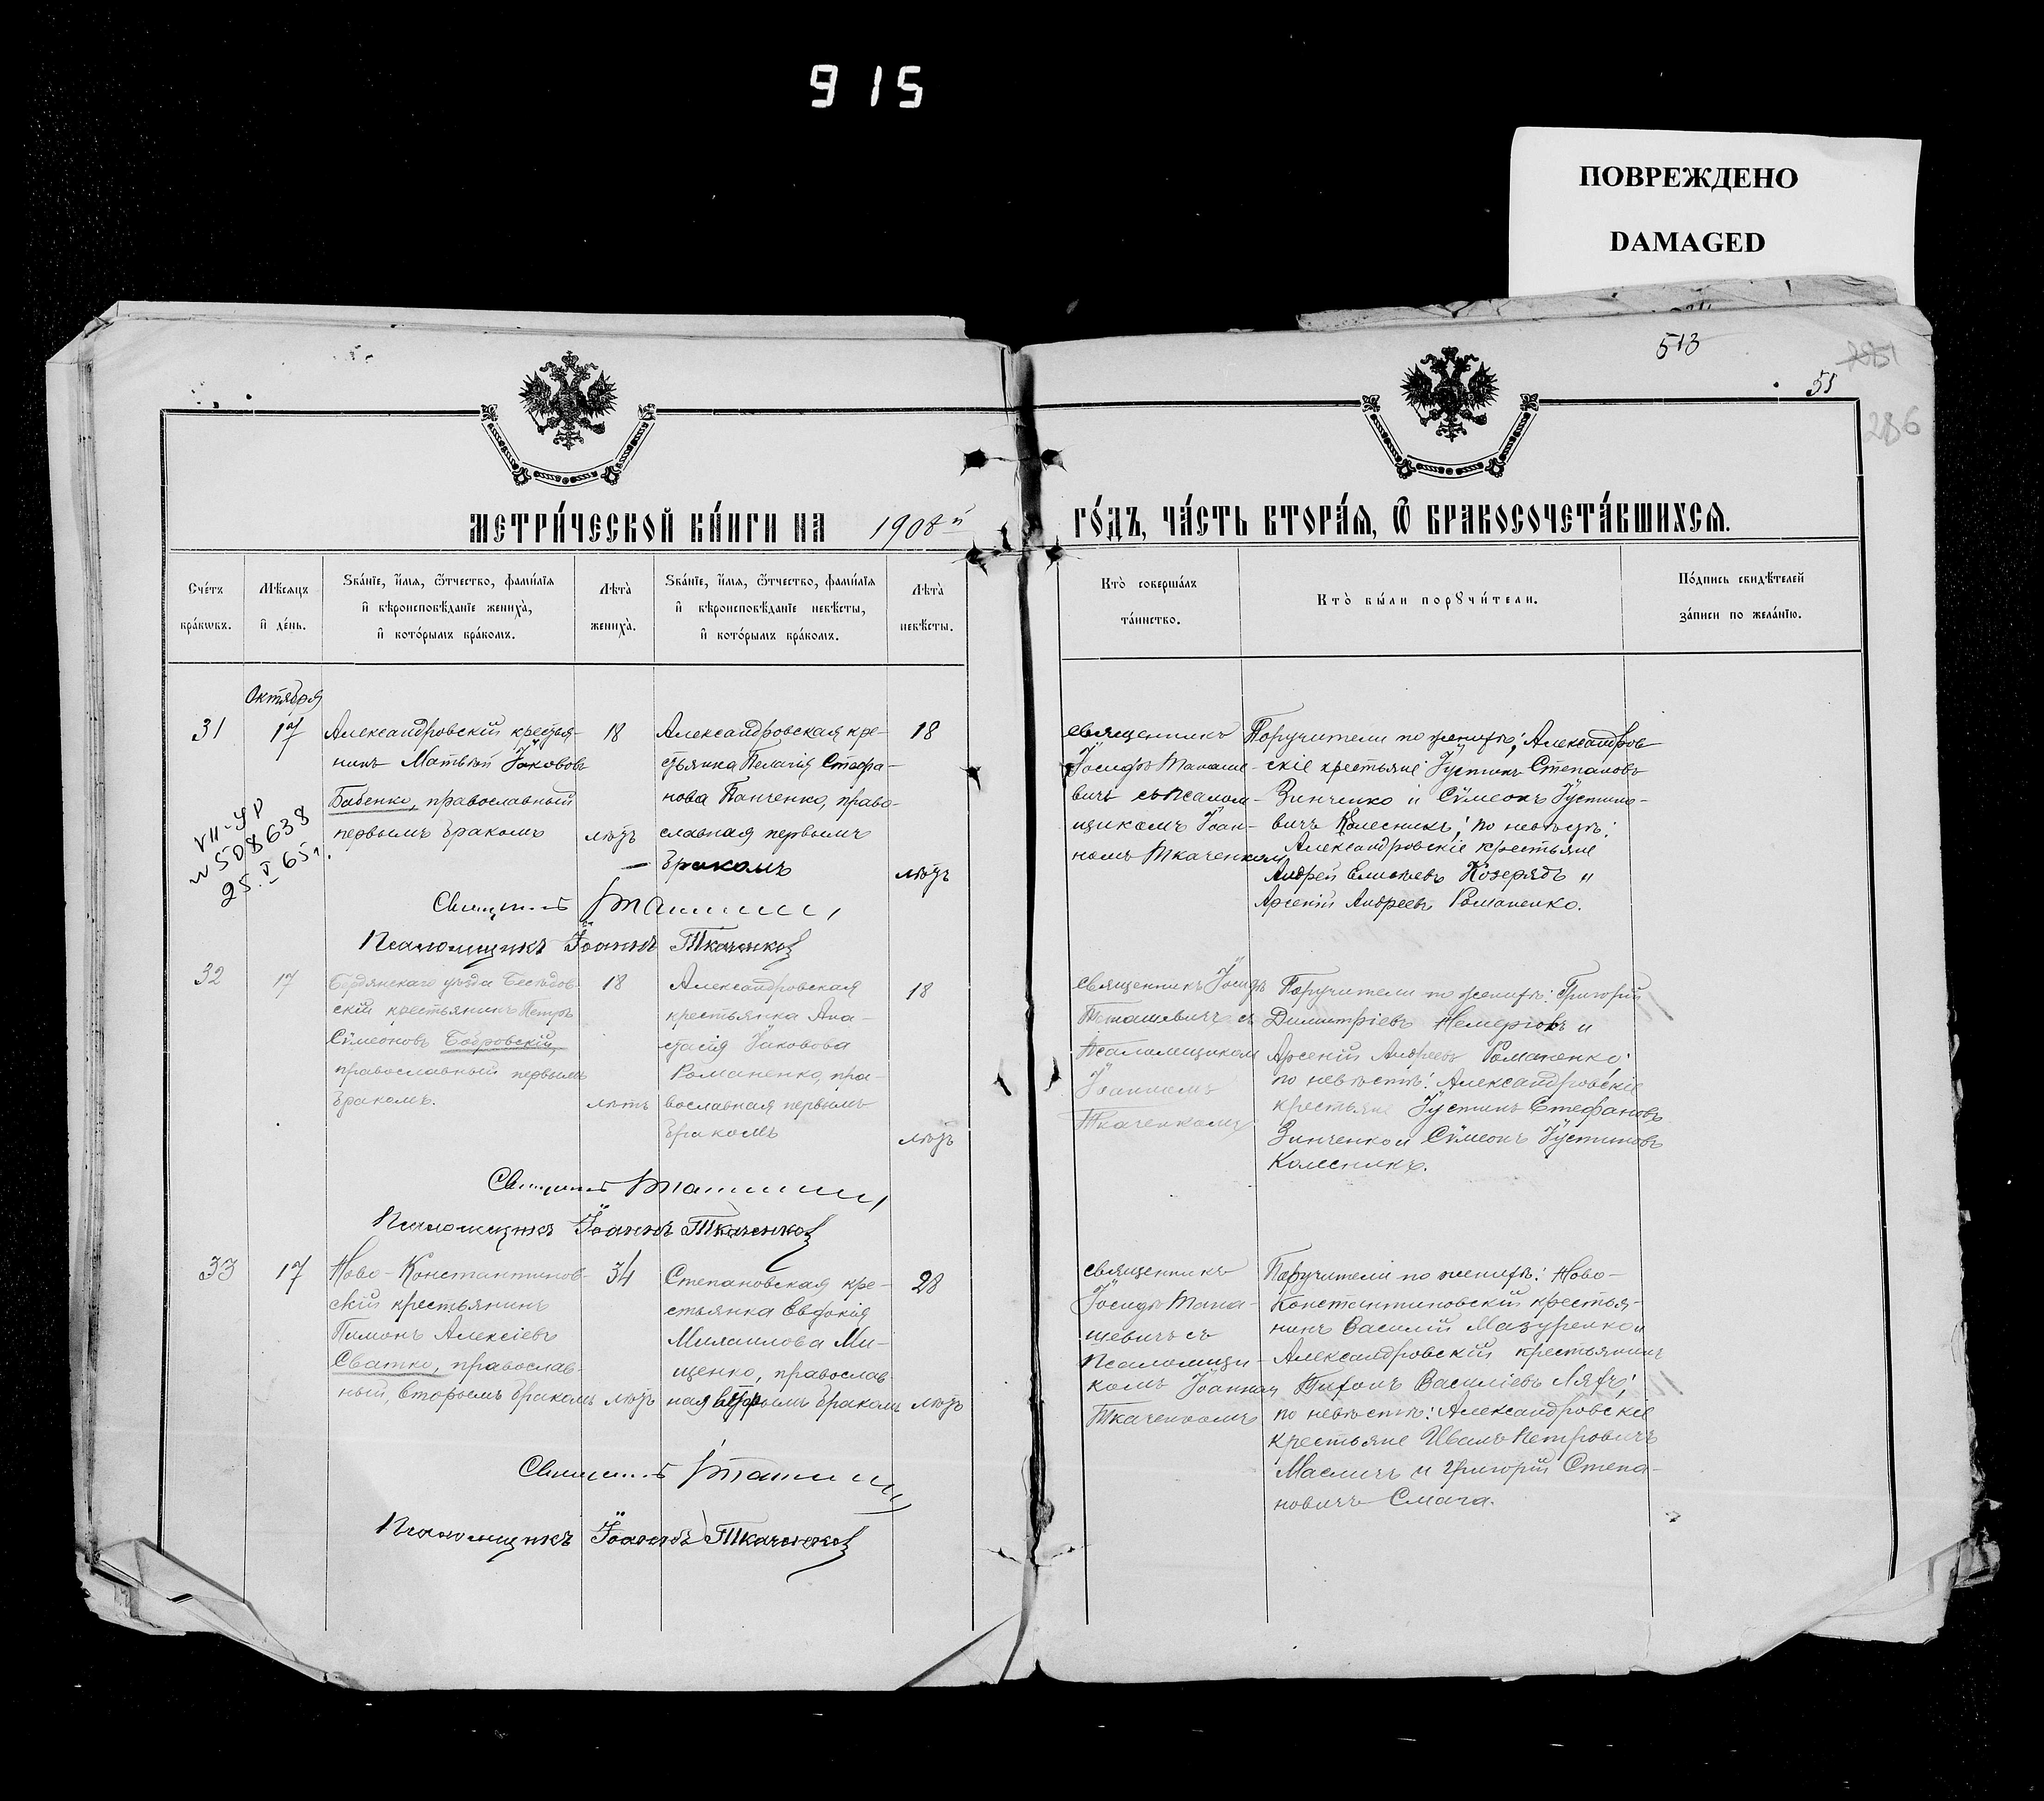 915
ПОВРЕЖДЕНО
DAMAGED
513
55
286
МЕТРИ́ЧЕСКОЙ КНИ́ГИ НА 1908й ГО́ДЪ, ЧА́СТЬ ВТОРА́Я, Ѿ БРАКОСОЧЕТА́ВШИХСЯ.
Сче́тъ бра́кѡвъ.
Мѣ́сяцъ и де́нь.
Зва́нїе, и́мя, ѻ҆́тчество, фами́лїя
и вѣроисповѣ́данїе жениха̀,
и кото́рымъ бра́комъ.
Лѣта̀ жениха̀.
Зва́нїе, и́мя, ѻ҆́тчество, фами́лїя
и вѣроисповѣ́данїе невѣ́сты,
и кото́рымъ бра́комъ.
Лѣта̀ невѣ́сты.
Кто̀ соверша́лъ
та́инство.
Кто̀ бы́ли порꙋчи́тели.
По́дпись свидѣ́телей
за́писи по жела́нїю.
Октября
31
17
Александровскій крестья-
нинъ Матѳей Іакововъ
Бабенко, православный
первымъ бракомъ
18
лѣтъ
Александровская кре-
стьянка Пелагія Стефа-
нова Панченко, право-
славная первымъ
бракомъ
18
лѣтъ
священникъ
Іосифъ Танаше-
вичъ съ псалом-
щикомъ Іоан-
номъ Ткаченком
Поручители по женихѣ; Александров
скіе крестьяне Іустинъ Степановъ
Зинченко и Сѵмеонъ Іустино-
вичъ Колесникъ; по невѣстѣ:
Александровскіе крестьяне
Андрей Елисѣевъ Козерядъ и
Арсеній Андреевъ Романенко.
VII-ЯР
N 508638
25.V 65г.
Священникъ
Псаломщикъ Іоаннъ Ткаченко
32
17
Бердянскаго уѣзда Бесѣдов
скій крестьянинъ Петръ
Сѵмеоновъ Бобровскій,
православный первымъ
бракомъ.
18
лѣтъ
Александровская
крестьянка Ана-
стасія Іаковова
Романенко, пра-
вославная первымъ
бракомъ
18
лѣтъ
священникъ Іосифъ
Танашевичъ съ
псаломщикомъ
Іоанномъ
Ткаченкомъ
Поручители по женихѣ: Григорій
Димитріевъ Немерговъ и
Арсеній Андреевъ Романенко;
по невѣстѣ: Александровскіе
крестьяне Іустинъ Стефановъ
Зинченко и Сѵмеонъ Іустиновъ
Колесникъ.
Священникъ
Псаломщикъ Іоаннъ Ткаченко
33
17
Ново-Константинов-
скій крестьянинъ
Пименъ Алексіевъ
Сватко, православ-
ный, вторымъ бракомъ
34
лѣтъ
Степановская кре-
стьянка Евдокія
Михаилова Ми-
щенко, православ
ная вторымъ бракомъ
28
лѣтъ
священникъ
Іосифъ Тана-
шевичъ съ
псаломщи-
комъ Іоанном
Ткаченкомъ
Поручители по женихѣ: Ново-
Константиновскій крестья-
нинъ Василій Мазуренко и
Александровскій крестьянинъ
Тихонъ Василіевъ Ляхъ;
по невѣстѣ: Александровскіе
крестьяне Иванъ Петровичъ
Масличъ и Григорій Степа-
новичъ Смага.
Священникъ
Псаломщикъ Іоаннъ Ткаченко